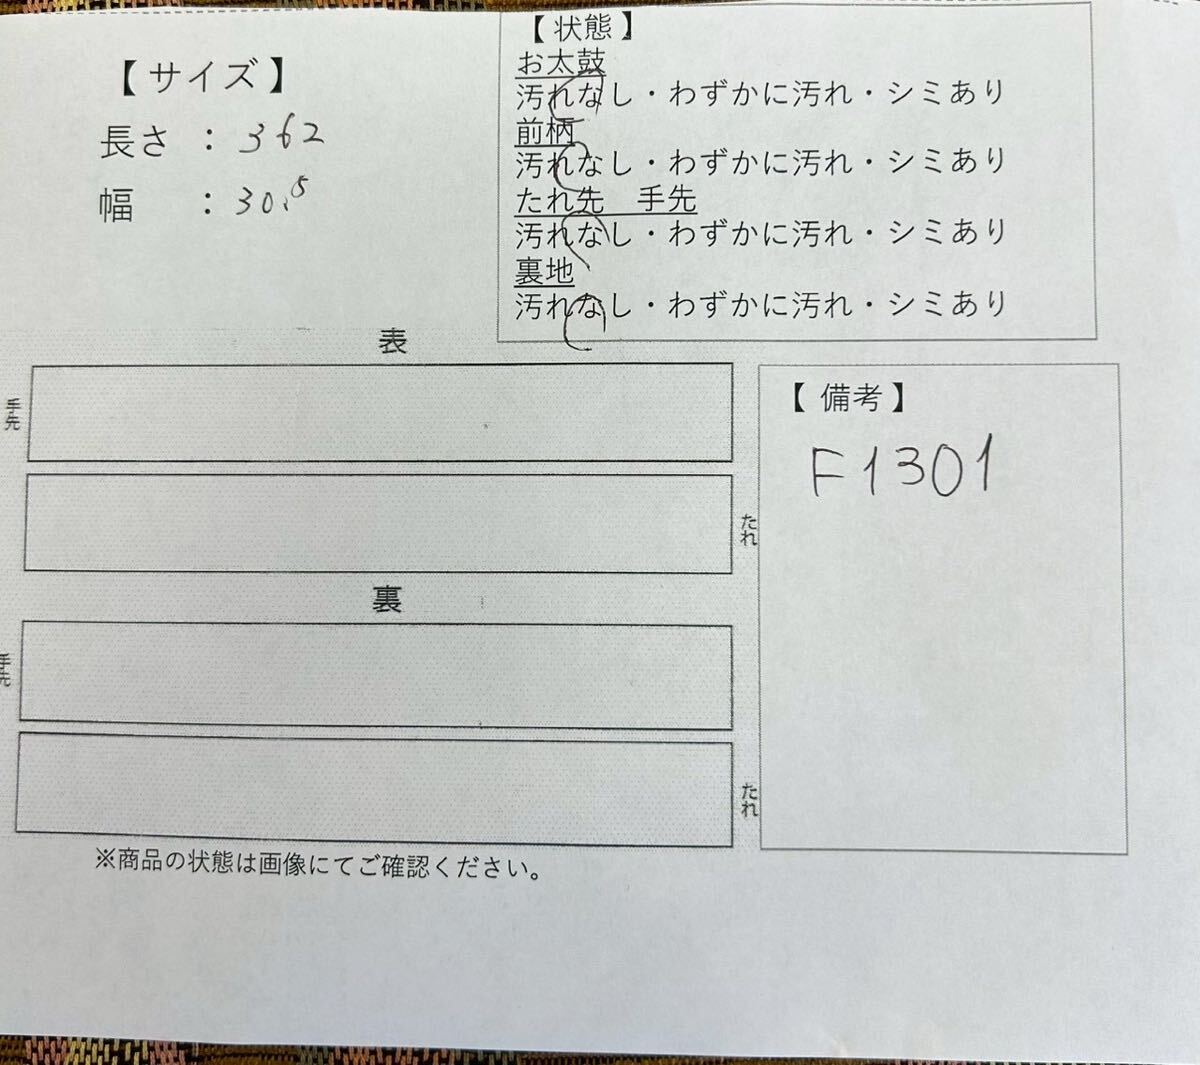 【 サイズ 】
長さ ： 362
幅 ： 30.5
【 状態 】
お太鼓
汚れなし・わずかに汚れ・シミあり
前柄
汚れなし・わずかに汚れ・シミあり
たれ先　手先
汚れなし・わずかに汚れ・シミあり
裏地
汚れなし・わずかに汚れ・シミあり
表
手先
たれ
裏
手先
たれ
※商品の状態は画像にてご確認ください。
【 備考 】
F1301